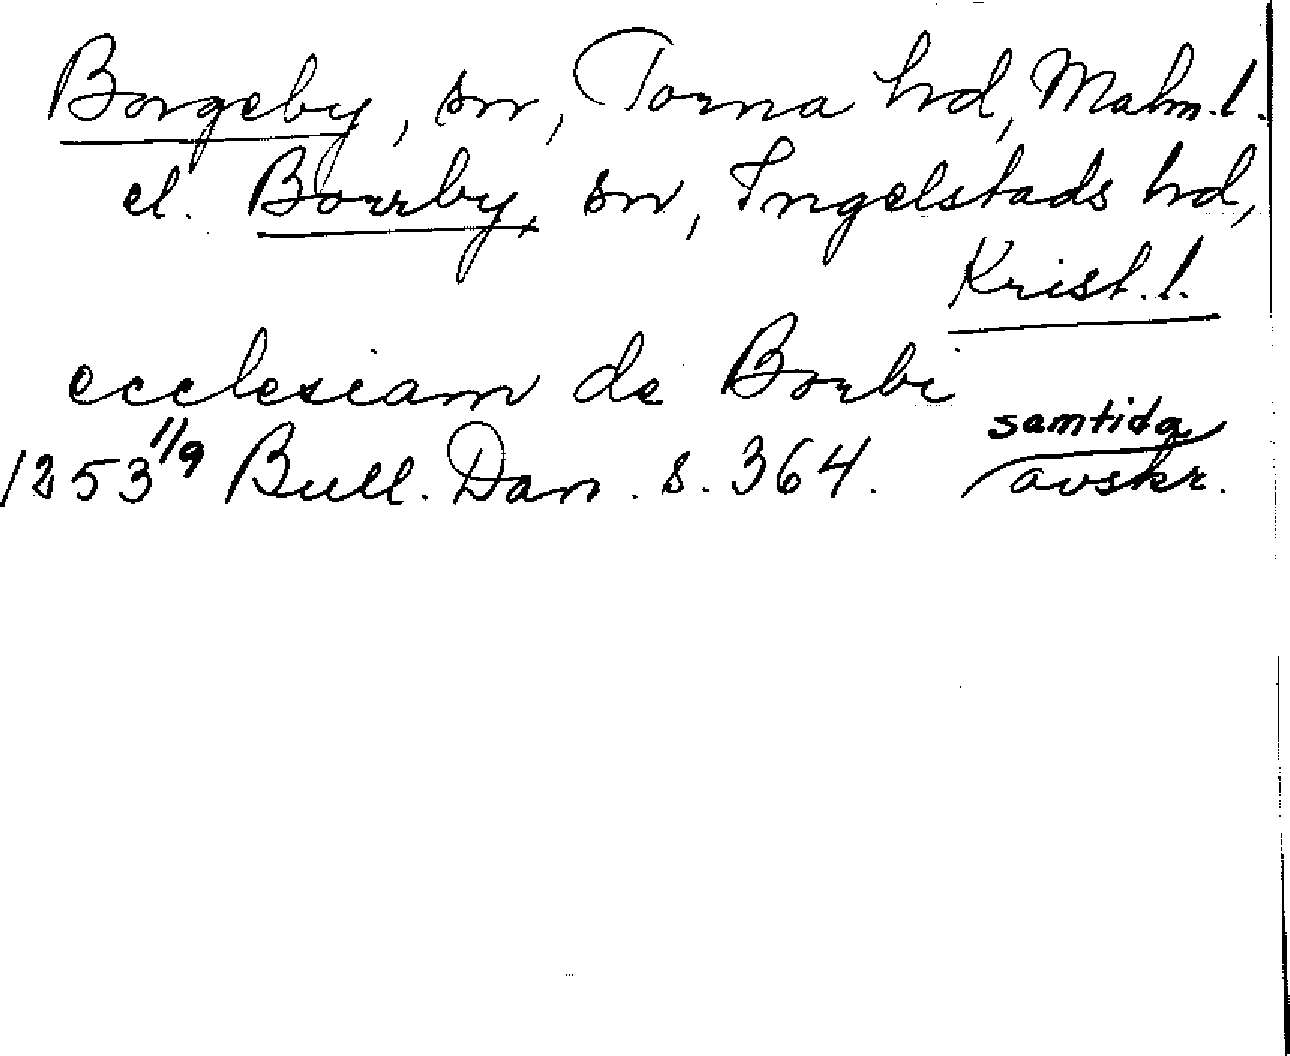 Borgeby, sn, Torna hd, Malm. l.
el. Borrby, sn, Ingelstads hd,
Krist. l.
ecclesiam de Borbi
1253 1/9 Bull. Dan. s. 364. samtida
avskr.